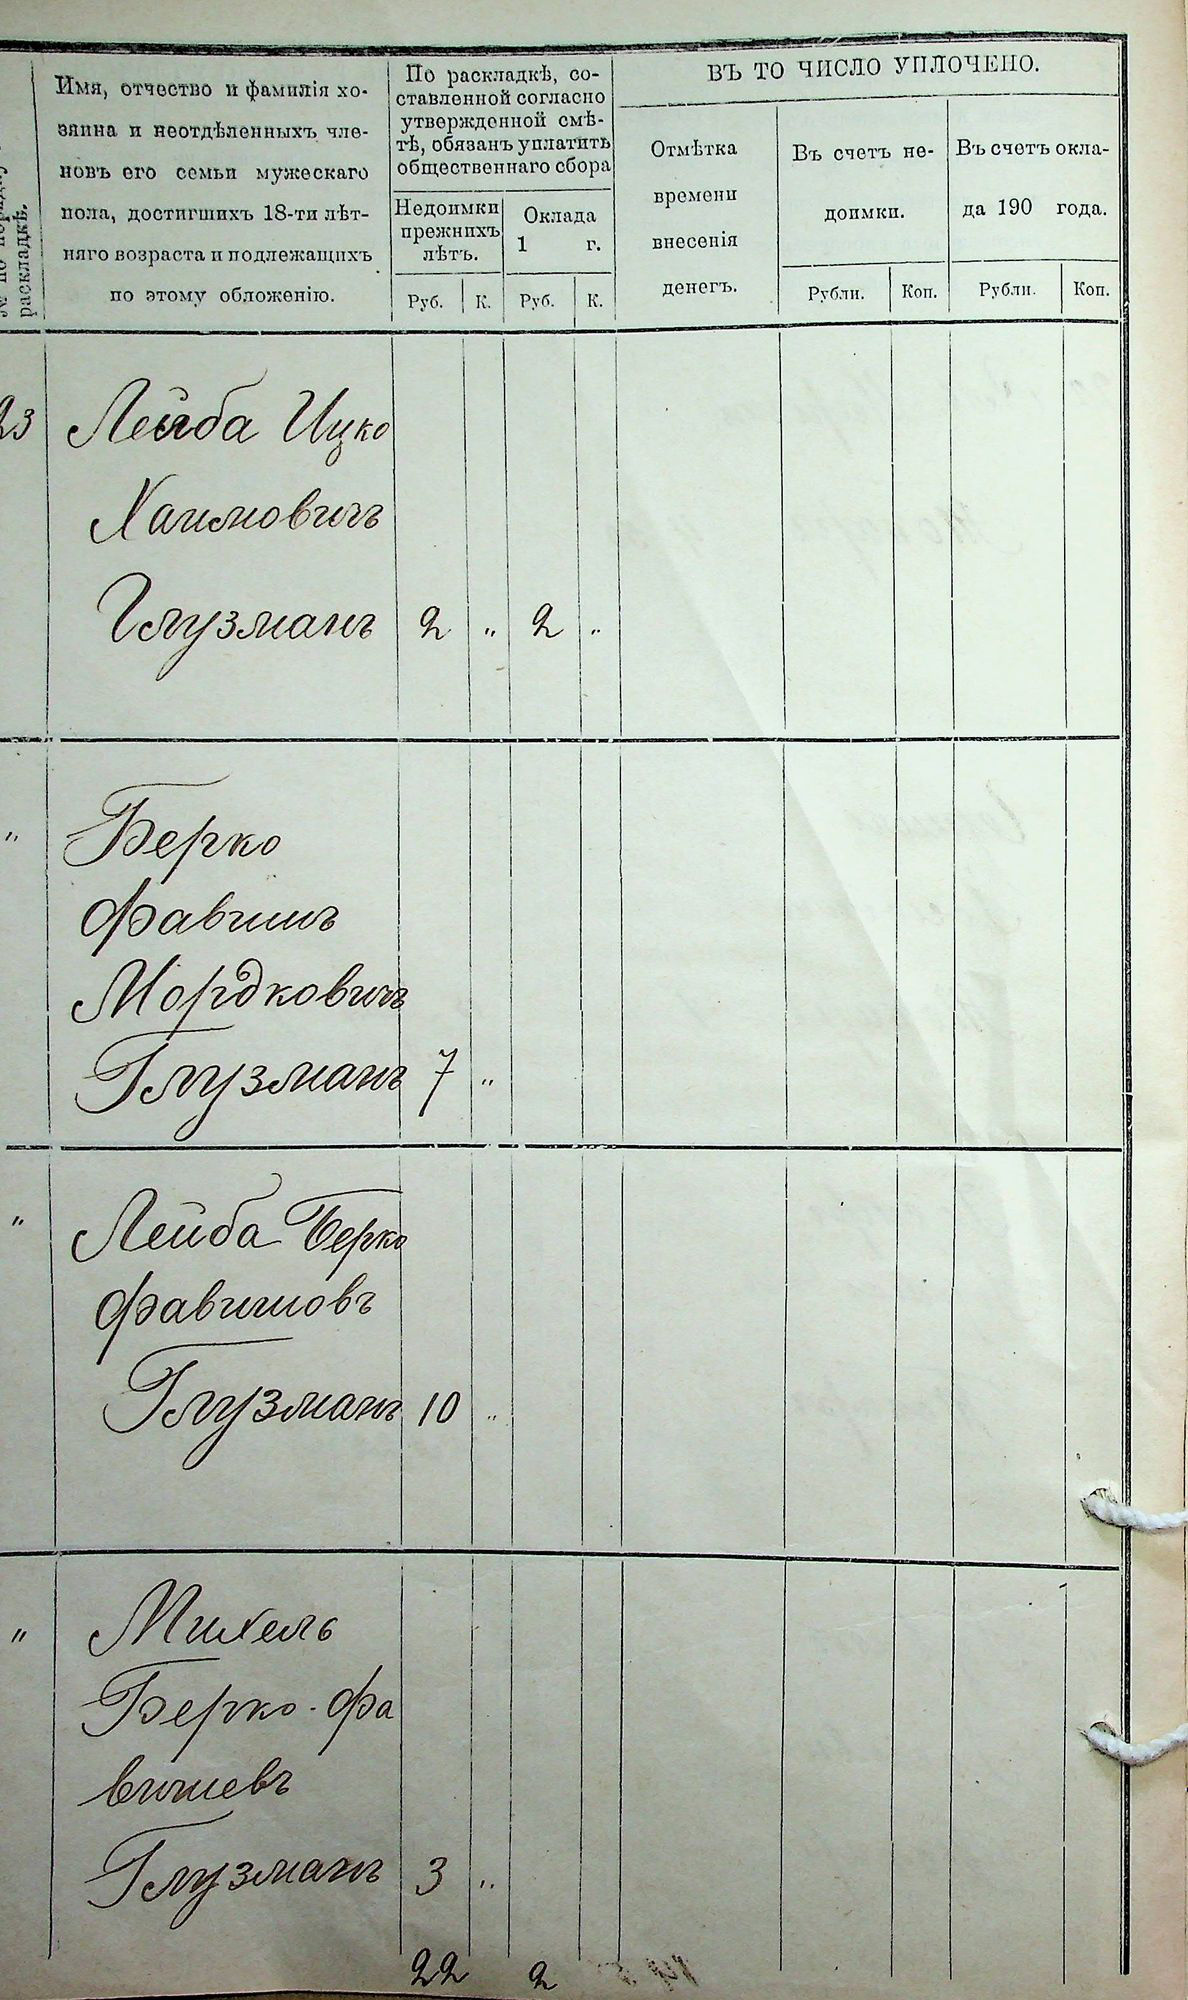 № по порядку
раскладкѣ.
Имя, отчество и фамилія хо-
зяина и неотдѣленныхъ чле-
новъ его семьи мужескаго
пола, достигшихъ 18-ти лѣт-
няго возраста и подлежащихъ
по этому обложенію.
По раскладкѣ, со-
ставленной согласно
утвержденной смѣ-
тѣ, обязанъ уплатить
общественнаго сбора
Недоимки
прежнихъ
лѣтъ.
Оклада
1 г.
Руб. К. Руб. К.
ВЪ ТО ЧИСЛО УПЛОЧЕНО.
Отмѣтка
времени
внесенія
денегъ.
Въ счетъ не-
доимки.
Въ счетъ окла-
да 190 года.
Рубли. Коп. Рубли. Коп.
23 Лейба Ицко
Хаимовичъ
Глузманъ 2 " 2 "
" Берко
Фавишъ
Мордковичъ
Глузманъ 7 "
" Лейба Берко
Фавишовъ
Глузманъ 10 "
" Михель
Берко-Фа
вишевъ
Глузманъ 3 "
22 2